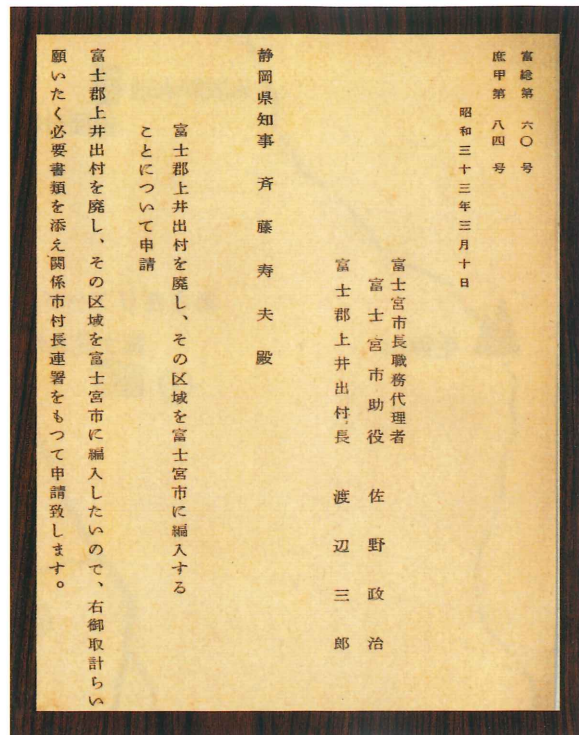 富総第六〇号
庶甲第八四号
昭和三十三年三月十日
富士宮市長職務代理者
富士宮市助役 佐野政治
富士郡上井出村長 渡辺三郎
静岡県知事 斉藤寿夫殿
富士郡上井出村を廃し、その区域を富士宮市に編入する
ことについて申請
富士郡上井出村を廃し、その区域を富士宮市に編入したいので、右御取計らい
願いたく必要書類を添え関係市村長連署をもつて申請致します。